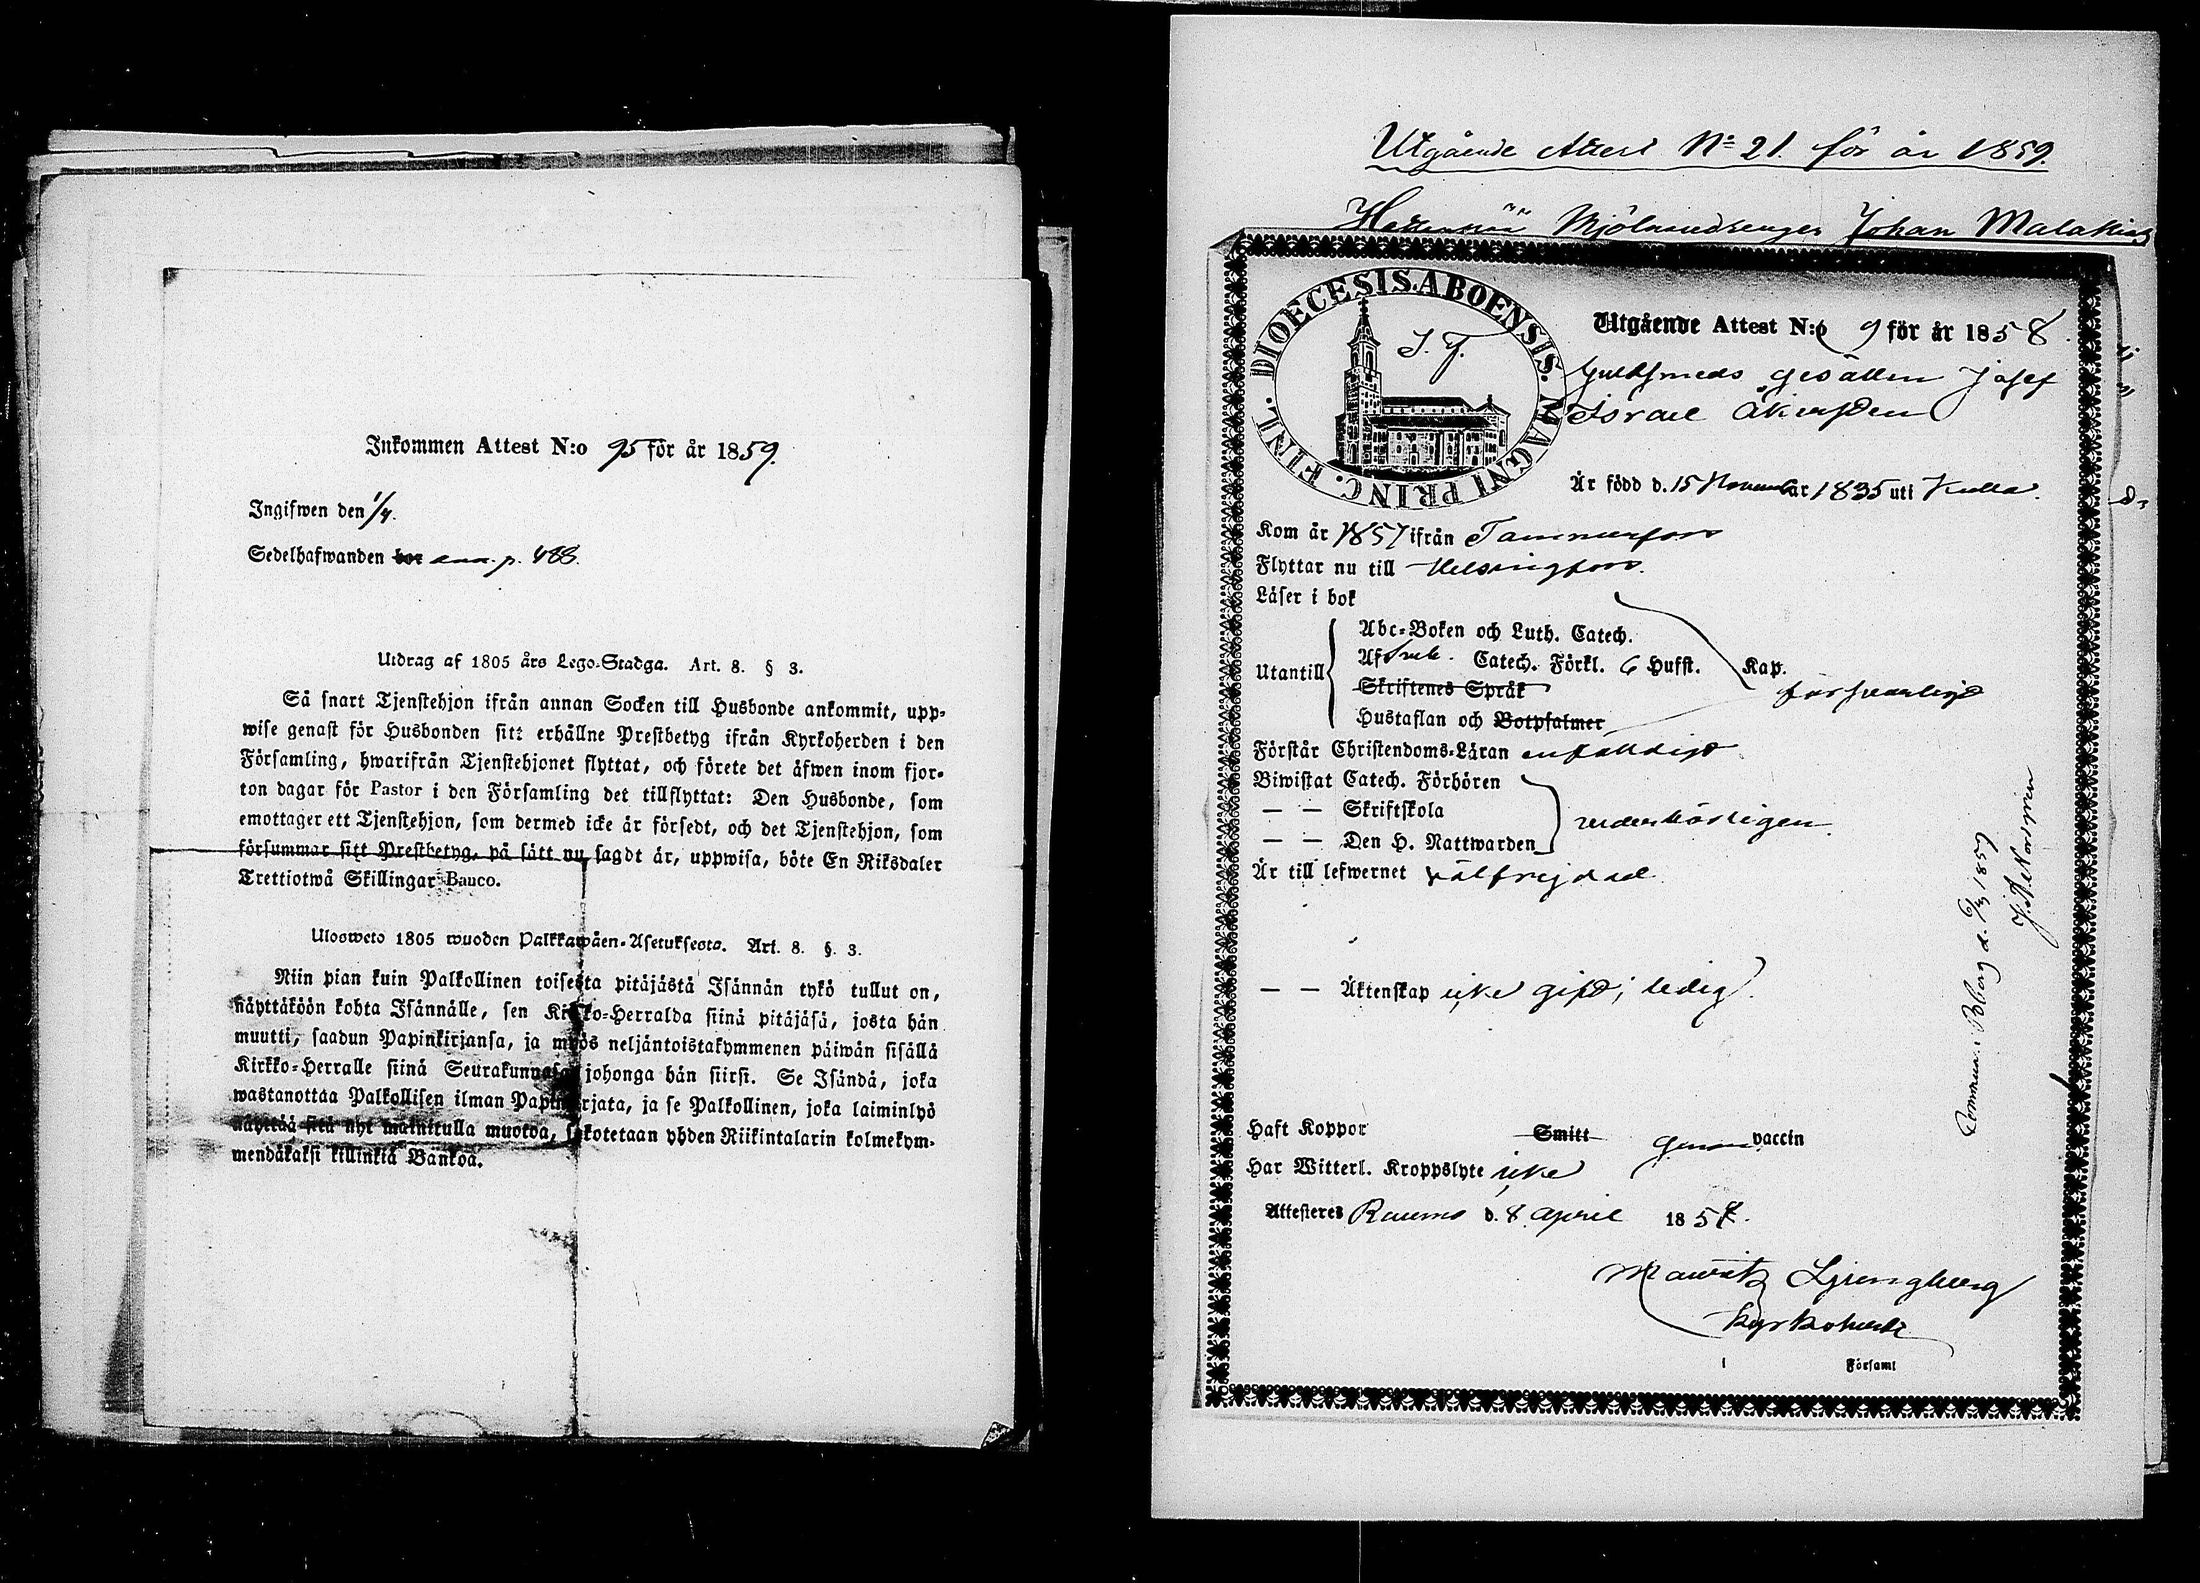 Inkommen Attest N:o 95 för år 1859.
Ingifwen den 1/4.
Sedelhafwanden bor ann. p. 488.
Utdrag af 1805 års Lego-Stadga. Art. 8. § 3.
Så snart Tjenstehjon ifrån annan Socken till Husbonde ankommit, upp-
wise genast för Husbonden sitt erhållne Prestbetyg ifrån Kyrkoherden i den
Församling, hwarifrån Tjenstehjonet flyttat, och förete det äfwen inom fjor-
ton dagar för Pastor i den Församling det tillflyttat: Den Husbonde, som
emottager ett Tjenstehjon, som dermed icke är försedt, och det Tjenstehjon, som
försummar sitt Prestbetyg, på sätt nu sagdt är, uppwisa, böte En Riksdaler
Trettiotwå Skillingar Banco.
Ulosweto 1805 wuoden Palkkawäen-Asetuksesta. Art. 8. §. 3.
Niin pian kuin Palkollinen toisesta pitäjästä Isännän tykö tullut on,
näyttäköön kohta Isännälle, sen Kirkko-Herralda siinä pitäjäsä, josta hän
muutti, saadun Papinkirjansa, ja myös neljäntoistakymmenen päiwän sisällä
Kirkko-Herralle siinä Seurakunnasa johonga hän siirsi. Se Isändä, joka
wastanottaa Palkollisen ilman Papinkirjata, ja se Palkollinen, joka laiminlyö
näyttää sitä nyt mainitulla muotoa, sakotetaan yhden Riikintalarin kolmekym-
mendäkaksi killinkiä Bankoa.
Utgående Attest No 21. för år 1859.
Johan Malakias
DIOECESIS ABOENSIS. MAGNI PRINC. FINL.
S. F.
Utgående Attest N:o 9 för år 1858.
Guldsmeds gesällen Josef
Israel
Är född d. 15 November 1835 uti Kulla.
Kom år 1857 ifrån Tammerfors
Flyttar nu till Helsingfors.
Läser i bok
Utantill
Abc-Boken och Luth. Catech.
Af Sveb. Catech. Förkl. 6 Hufst. Kap.
Skriftenes Språk
försvarligt
Hustaflan och Botpsalmer
Förstår Christendoms-Läran enfaldigt
Biwistat Catech. Förhören
— — Skriftskola
— — Den H. Nattwarden
vederbörligen.
Är till lefwernet välfrejdad
— — Äktenskap icke gift; ledig.
Haft Koppor Smitt genom vaccin
Har Witterl. Kroppslyte icke
Attesteres Raumo d. 8 April 1858.
Mauritz Ljungberg
Kyrkoherde
i Församl